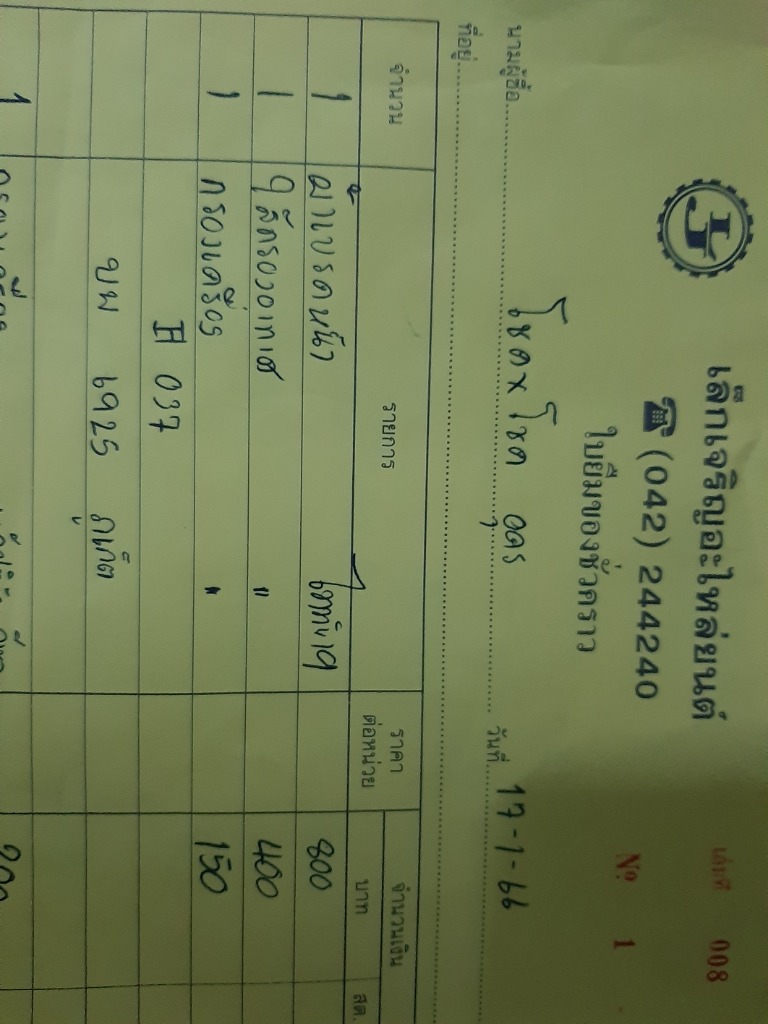 เล็กเจริญอะไหล่ยนต์
เล่มที่ 008
☎ (042) 244240
ใบยืมของชั่วคราว
Nº. 1
นามผู้ซื้อ โชค x โชค อุดร วันที่ 17-1-66
ที่อยู่
จำนวน รายการ ราคาต่อหน่วย จำนวนเงิน
บาท สต.
1 ผ้าเบรคหน้า 800
1 ไส้กรองอากาศ " 400
1 กรองเครื่อง " 150
037
ขม 6925 ภูเก็ต
1 200